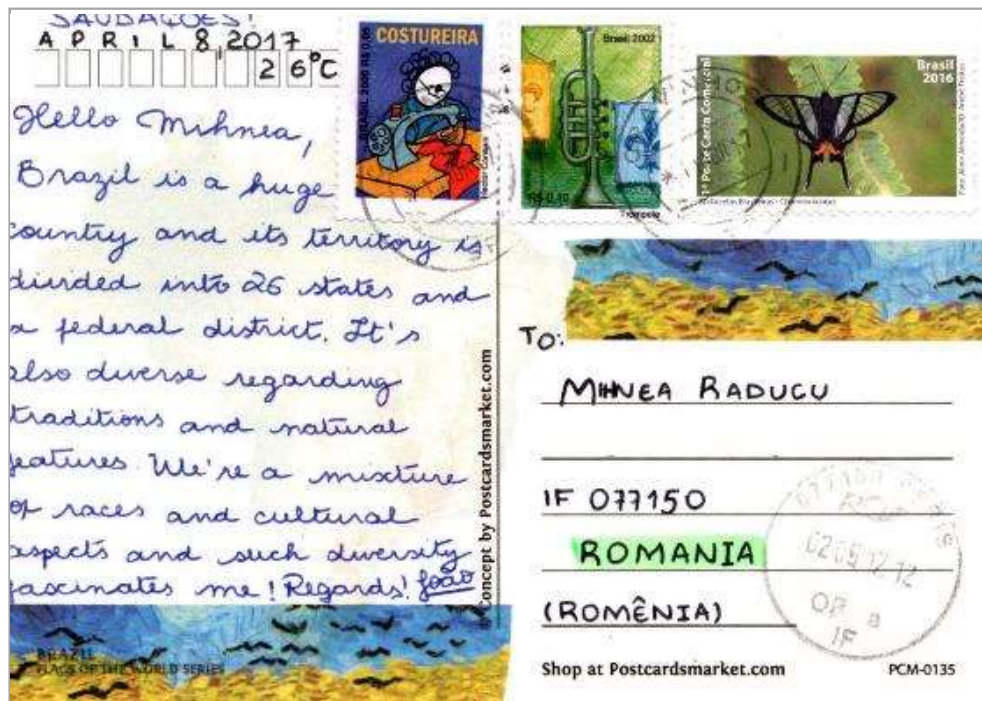 SAUDAÇÕES!
APRIL 8, 2017
26°C
Hello Mihnea,
Brazil is a huge
country and its territory is
divided into 26 states and
a federal district. It's
also diverse regarding
traditions and natural
features. We're a mixture
of races and cultural
aspects and such diversity
fascinates me! Regards! João
BRAZIL
FLAGS OF THE WORLD SERIES
Concept by Postcardsmarket.com
COSTUREIRA
BRASIL 2006 R$ 0,05
Brasil 2002
R$ 0,10
Trompete
Brasil
2016
1º Porte Carta Comercial
TO:
MIHNEA RADUCU
IF 077150
ROMANIA
(ROMÊNIA)
OP
IF
Shop at Postcardsmarket.com
PCM-0135